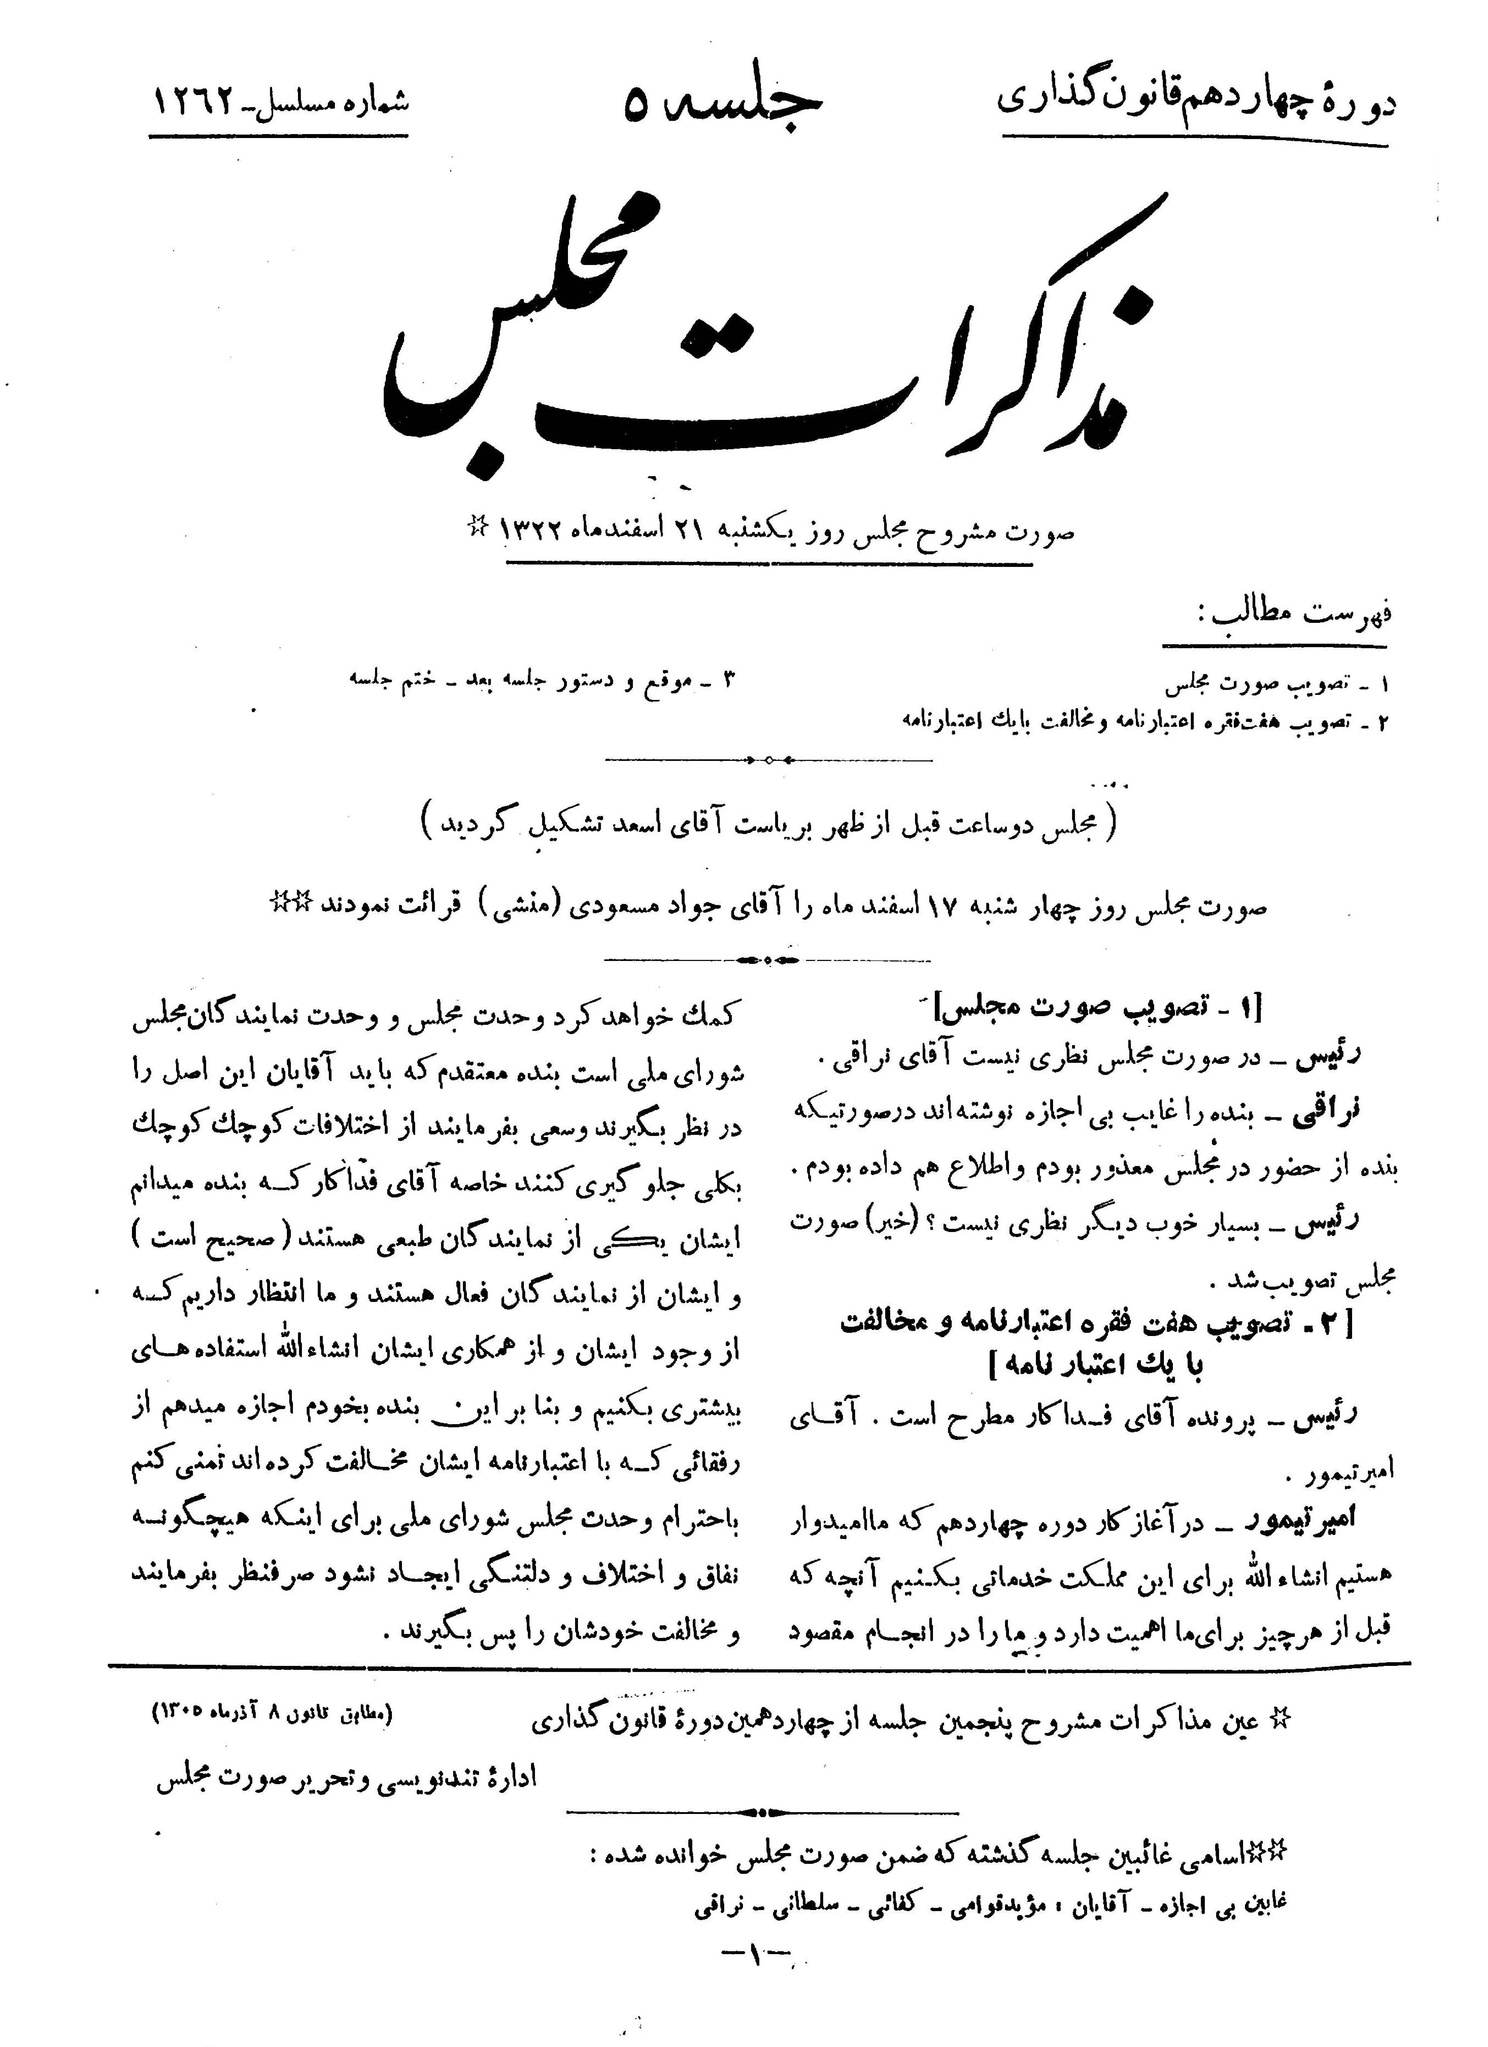 دورهٔ چهاردهم قانون گذاری
جلسه ۵
شماره مسلسل ـ ۱۲۶۲
مذاکرات مجلس
صورت مشروح مجلس روز یکشنبه ۲۱ اسفندماه ۱۳۲۲ ☆
فهرست مطالب :
۱ ـ تصویب صورت مجلس
۲ ـ تصویب هفت فقره اعتبارنامه و مخالفت بایك اعتبارنامه
۳ ـ موقع و دستور جلسه بعد ـ ختم جلسه
( مجلس دوساعت قبل از ظهر بریاست آقای اسعد تشکیل گردید )
صورت مجلس روز چهار شنبه ۱۷ اسفند ماه را آقای جواد مسعودی (منشی) قرائت نمودند ☆☆
[۱ ـ تصویب صورت مجلس]
رئیس ـ در صورت مجلس نظری نیست آقای نراقی .
نراقی ـ بنده را غایب بی اجازه نوشته‌اند درصورتیکه
بنده از حضور در مجلس معذور بودم و اطلاع هم داده بودم .
رئیس ـ بسیار خوب دیگر نظری نیست ؟ (خیر) صورت
مجلس تصویب شد .
[ ۲ ـ تصویب هفت فقره اعتبارنامه و مخالفت
با یك اعتبار نامه ]
رئیس ـ پرونده آقای فـداکار مطرح است . آقـای
امیرتیمور .
امیرتیمور ـ در آغاز کار دوره چهاردهم که ماامیدوار
هستیم انشاءالله برای این مملکت خدماتی بکنیم آنچه که
قبل از هرچیز برای‌ما اهمیت دارد و ما را در انجـام مقصود
کمك خواهد کرد وحدت مجلس و وحدت نمایندگان مجلس
شورای ملی است بنده معتقدم که باید آقایان این اصل را
در نظر بگیرند وسعی بفرمایند از اختلافات کوچك کوچك
بکلی جلو گیری کنند خاصه آقای فداکار کـه بنده میدانم
ایشان یکـی از نمایندگان طبعی هستند ( صحیح است )
و ایشان از نمایندگان فعال هستند و ما انتظار داریم کـه
از وجود ایشان و از همکاری ایشان انشاءالله استفاده‌های
بیشتری بکنیم و بنا بر این بنده بخودم اجازه میدهم از
رفقائی کـه با اعتبارنامه ایشان مخـالفت کرده‌اند تمنی کنم
باحترام وحدت مجلس شورای ملی برای اینکه هیچگونـه
نفاق و اختلاف و دلتنگی ایجـاد نشود صرفنظر بفرمایند
و مخالفت خودشان را پس بگیرند .
☆ عین مذاکرات مشروح پنجمین جلسه از چهاردهمین دورهٔ قانون گذاری
(مطابق قانون ۸ آذرماه ۱۳۰۵)
ادارهٔ تندنویسی و تحریر صورت مجلس
☆☆ اسامی غائبین جلسه گذشته که ضمن صورت مجلس خوانده شده :
غایبین بی اجازه ـ آقایان : مؤیدقوامی ـ کفائی ـ سلطانی ـ نراقی
ـ۱ـ